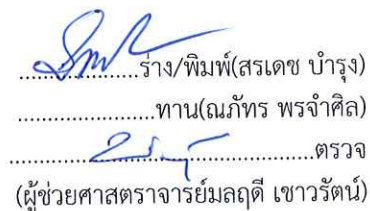 ....................ร่าง/พิมพ์(สรเดช บำรุง)
....................ทาน(ณภัทร พรจำศิล)
............................................ตรวจ
(ผู้ช่วยศาสตราจารย์มลฤดี เชาวรัตน์)